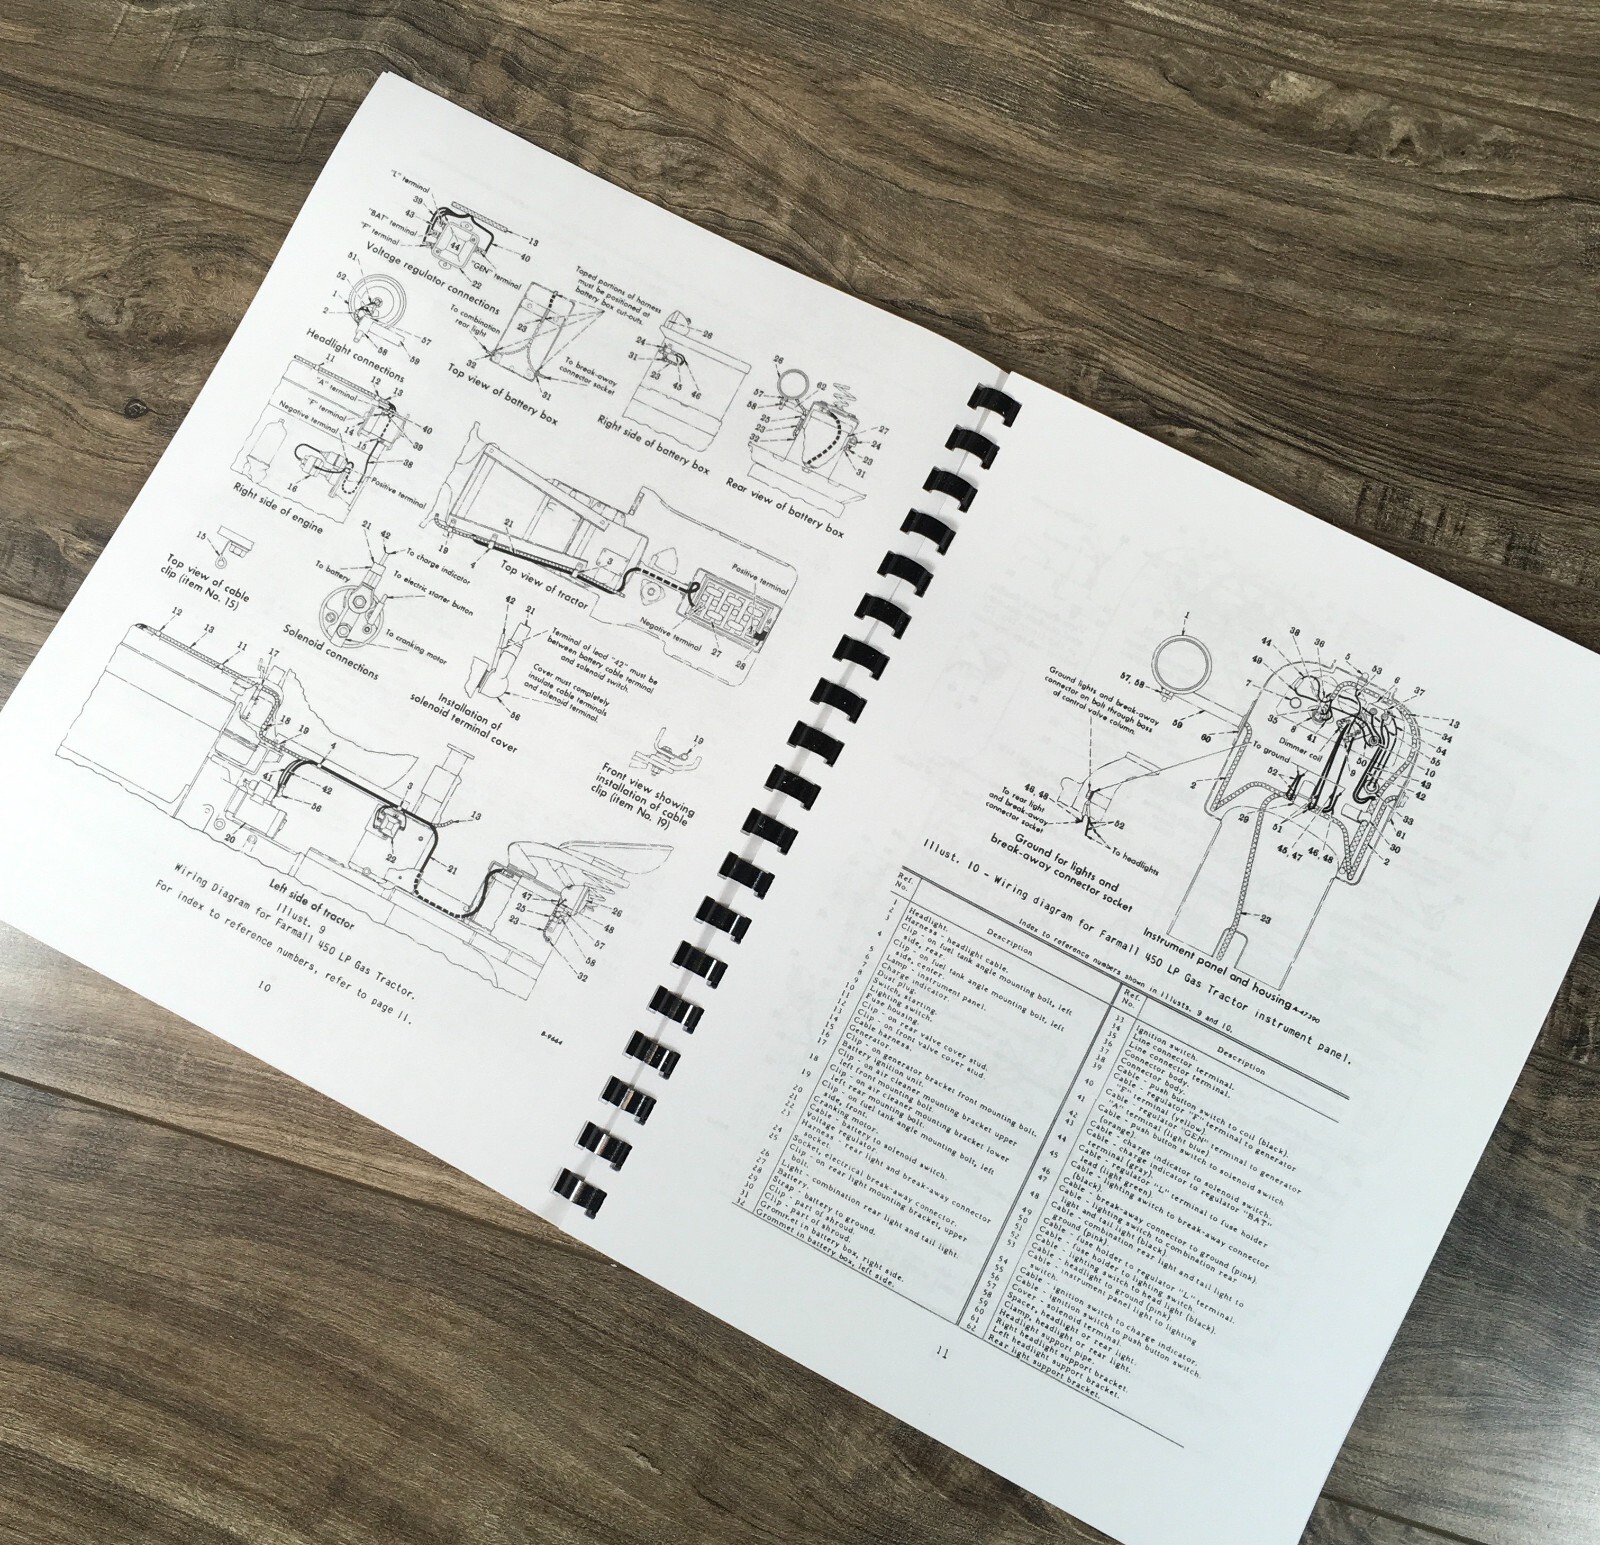 "L" terminal
39
43
"BAT" terminal
"F" terminal
44
13
40
"GEN" terminal
22
Voltage regulator connections
51
52
1
2
57
58
59
Headlight connections
To combination
rear light
23
32
31
Taped portions of harness
must be positioned at
battery box cut-outs.
To break-away
connector socket
Top view of battery box
26
24
31
23
45
46
Right side of battery box
26
57
58
25
23
32
62
27
24
23
31
Rear view of battery box
11
12
13
"A" terminal
"F" terminal
Negative terminal
14
15
40
39
38
16
Positive terminal
Right side of engine
15
Top view of cable
clip (item No. 15)
21
42
To battery
To charge indicator
To electric starter button
To cranking motor
Solenoid connections
19
4
21
3
Top view of tractor
Positive terminal
Negative terminal
27
28
42
21
Terminal of lead "42" must be
between battery cable terminal
and solenoid switch.
Cover must completely
insulate cable terminals
and solenoid terminal.
56
Installation of
solenoid terminal cover
19
Front view showing
installation of cable
clip (item No. 19)
12
13
11
17
18
19
4
41
42
56
20
3
13
22
21
47
25
23
26
48
57
58
32
Left side of tractor
Illust. 9
Wiring Diagram for Farmall 450 LP Gas Tractor.
For index to reference numbers, refer to page 11.
10
B-9664
1
57, 58
59
60
Ground lights and break-away
connector on bolt through boss
of control valve column.
To rear light
and break-away
connector socket
46, 48
52
To headlights
Ground for lights and
break-away connector socket
38
36
44
49
5
53
6
37
7
13
34
54
55
35
8
41
Dimmer coil
To ground
50
9
10
43
42
52
2
29
51
45, 47
46, 48
33
61
30
2
23
Instrument panel and housing
A-47390
Illust. 10 - Wiring diagram for Farmall 450 LP Gas Tractor instrument panel.
Index to reference numbers shown in Illusts. 9 and 10.
Ref.
No.
Description
1 Headlight.
2 Harness - headlight cable.
3 Clip - on fuel tank angle mounting bolt, left
side, rear.
4 Clip - on fuel tank angle mounting bolt, left
side, center.
5 Lamp - instrument panel.
6 Charge indicator.
7 Dust plug.
8 Switch, starting.
9 Lighting switch.
10 Fuse housing.
11 Clip - on rear valve cover stud.
12 Clip - on front valve cover stud.
13 Cable harness.
14 Generator.
15 Clip - on generator bracket front mounting bolt.
16 Battery ignition unit.
17 Clip - on air cleaner mounting bracket upper
left front mounting bolt.
18 Clip - on air cleaner mounting bracket lower
left rear mounting bolt.
19 Clip - on fuel tank angle mounting bolt, left
side, front.
20 Cranking motor.
21 Cable - battery to solenoid switch.
22 Voltage regulator.
23 Harness - rear light and break-away connector
socket.
24 Socket, electrical break-away connector.
25 Clip - on rear light mounting bracket, upper
bolt.
26 Light - combination rear light and tail light.
27 Battery.
28 Strap - battery to ground.
29 Clip - part of shroud.
30 Clip - part of shroud.
31 Grommet in battery box, right side.
32 Grommet in battery box, left side.
Ref.
No.
Description
33 Ignition switch.
34 Line connector terminal.
35 Line connector terminal.
36 Connector body.
37 Connector body.
38 Cable - push button switch to coil (black).
39 Cable - regulator "F" terminal to generator
"F" terminal (yellow).
40 Cable - regulator "GEN" terminal to generator
"A" terminal (light blue).
41 Cable - push button switch to solenoid switch
(orange).
42 Cable - charge indicator to solenoid switch.
43 Cable - charge indicator to regulator "BAT"
terminal (gray).
44 Cable - regulator "L" terminal to fuse holder
lead (light green).
45 Cable - lighting switch to break-away connector
(black).
46 Cable - break-away connector to ground (pink).
47 Cable - lighting switch to combination rear
light and tail light (black).
48 Cable - combination rear light and tail light to
ground (pink).
49 Cable - fuse holder to regulator "L" terminal.
50 Cable - fuse holder to lighting switch.
51 Cable - lighting switch to head light (black).
52 Cable - headlight to ground (pink).
53 Cable - instrument panel light to lighting
switch.
54 Cable - ignition switch to charge indicator.
55 Cable - ignition switch to push button switch.
56 Cover - solenoid terminal
57 Spacer, headlight or rear light.
58 Clamp, headlight or rear light.
59 Headlight support pipe.
60 Right headlight support bracket.
61 Left headlight support bracket.
62 Rear light support bracket.
11